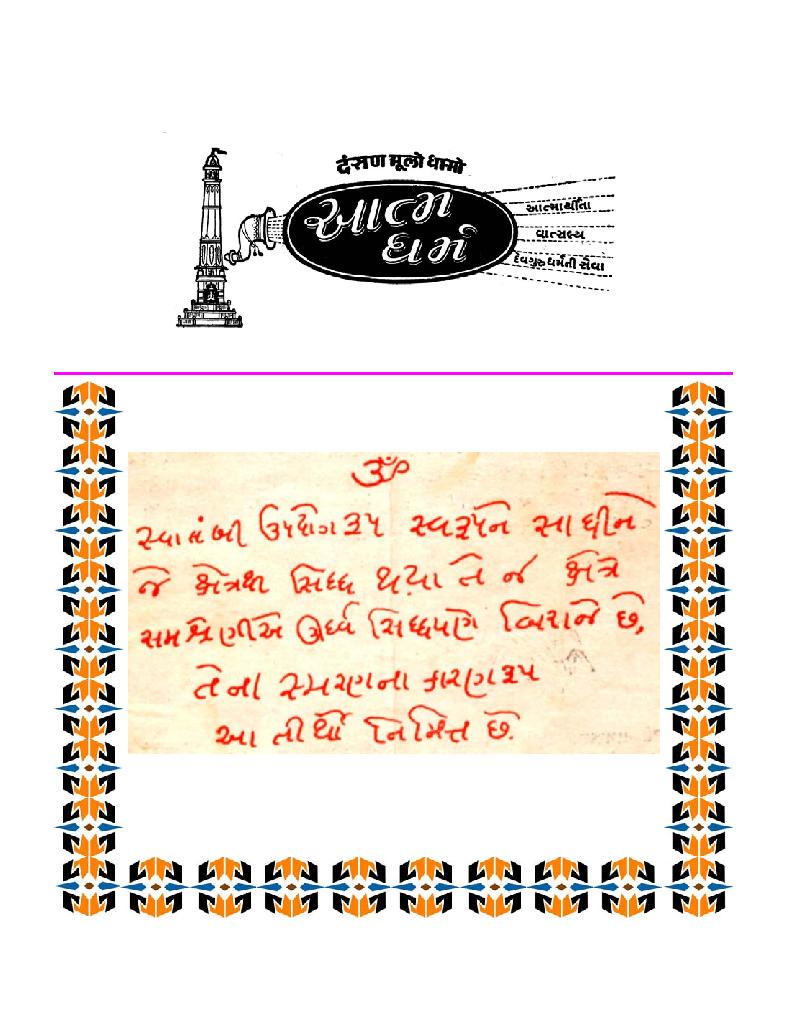 દંસણ મૂલો ધમ્મો
આત્મ
ધર્મ
આત્માર્થીતા
વાત્સલ્ય
દેવગુરુધર્મની સેવા
ॐ
સ્વાલંબી ઉપયોગરૂપ સ્વરૂપને સાધીને
જે ક્ષેત્રથી સિધ્ધ થયા તે જ ક્ષેત્રે
સમશ્રેણીએ ઊર્ધ્વ સિધ્ધપણે બિરાજે છે,
તેના સ્મરણના કારણરૂપ
આ તીર્થો નિમિત્ત છે.